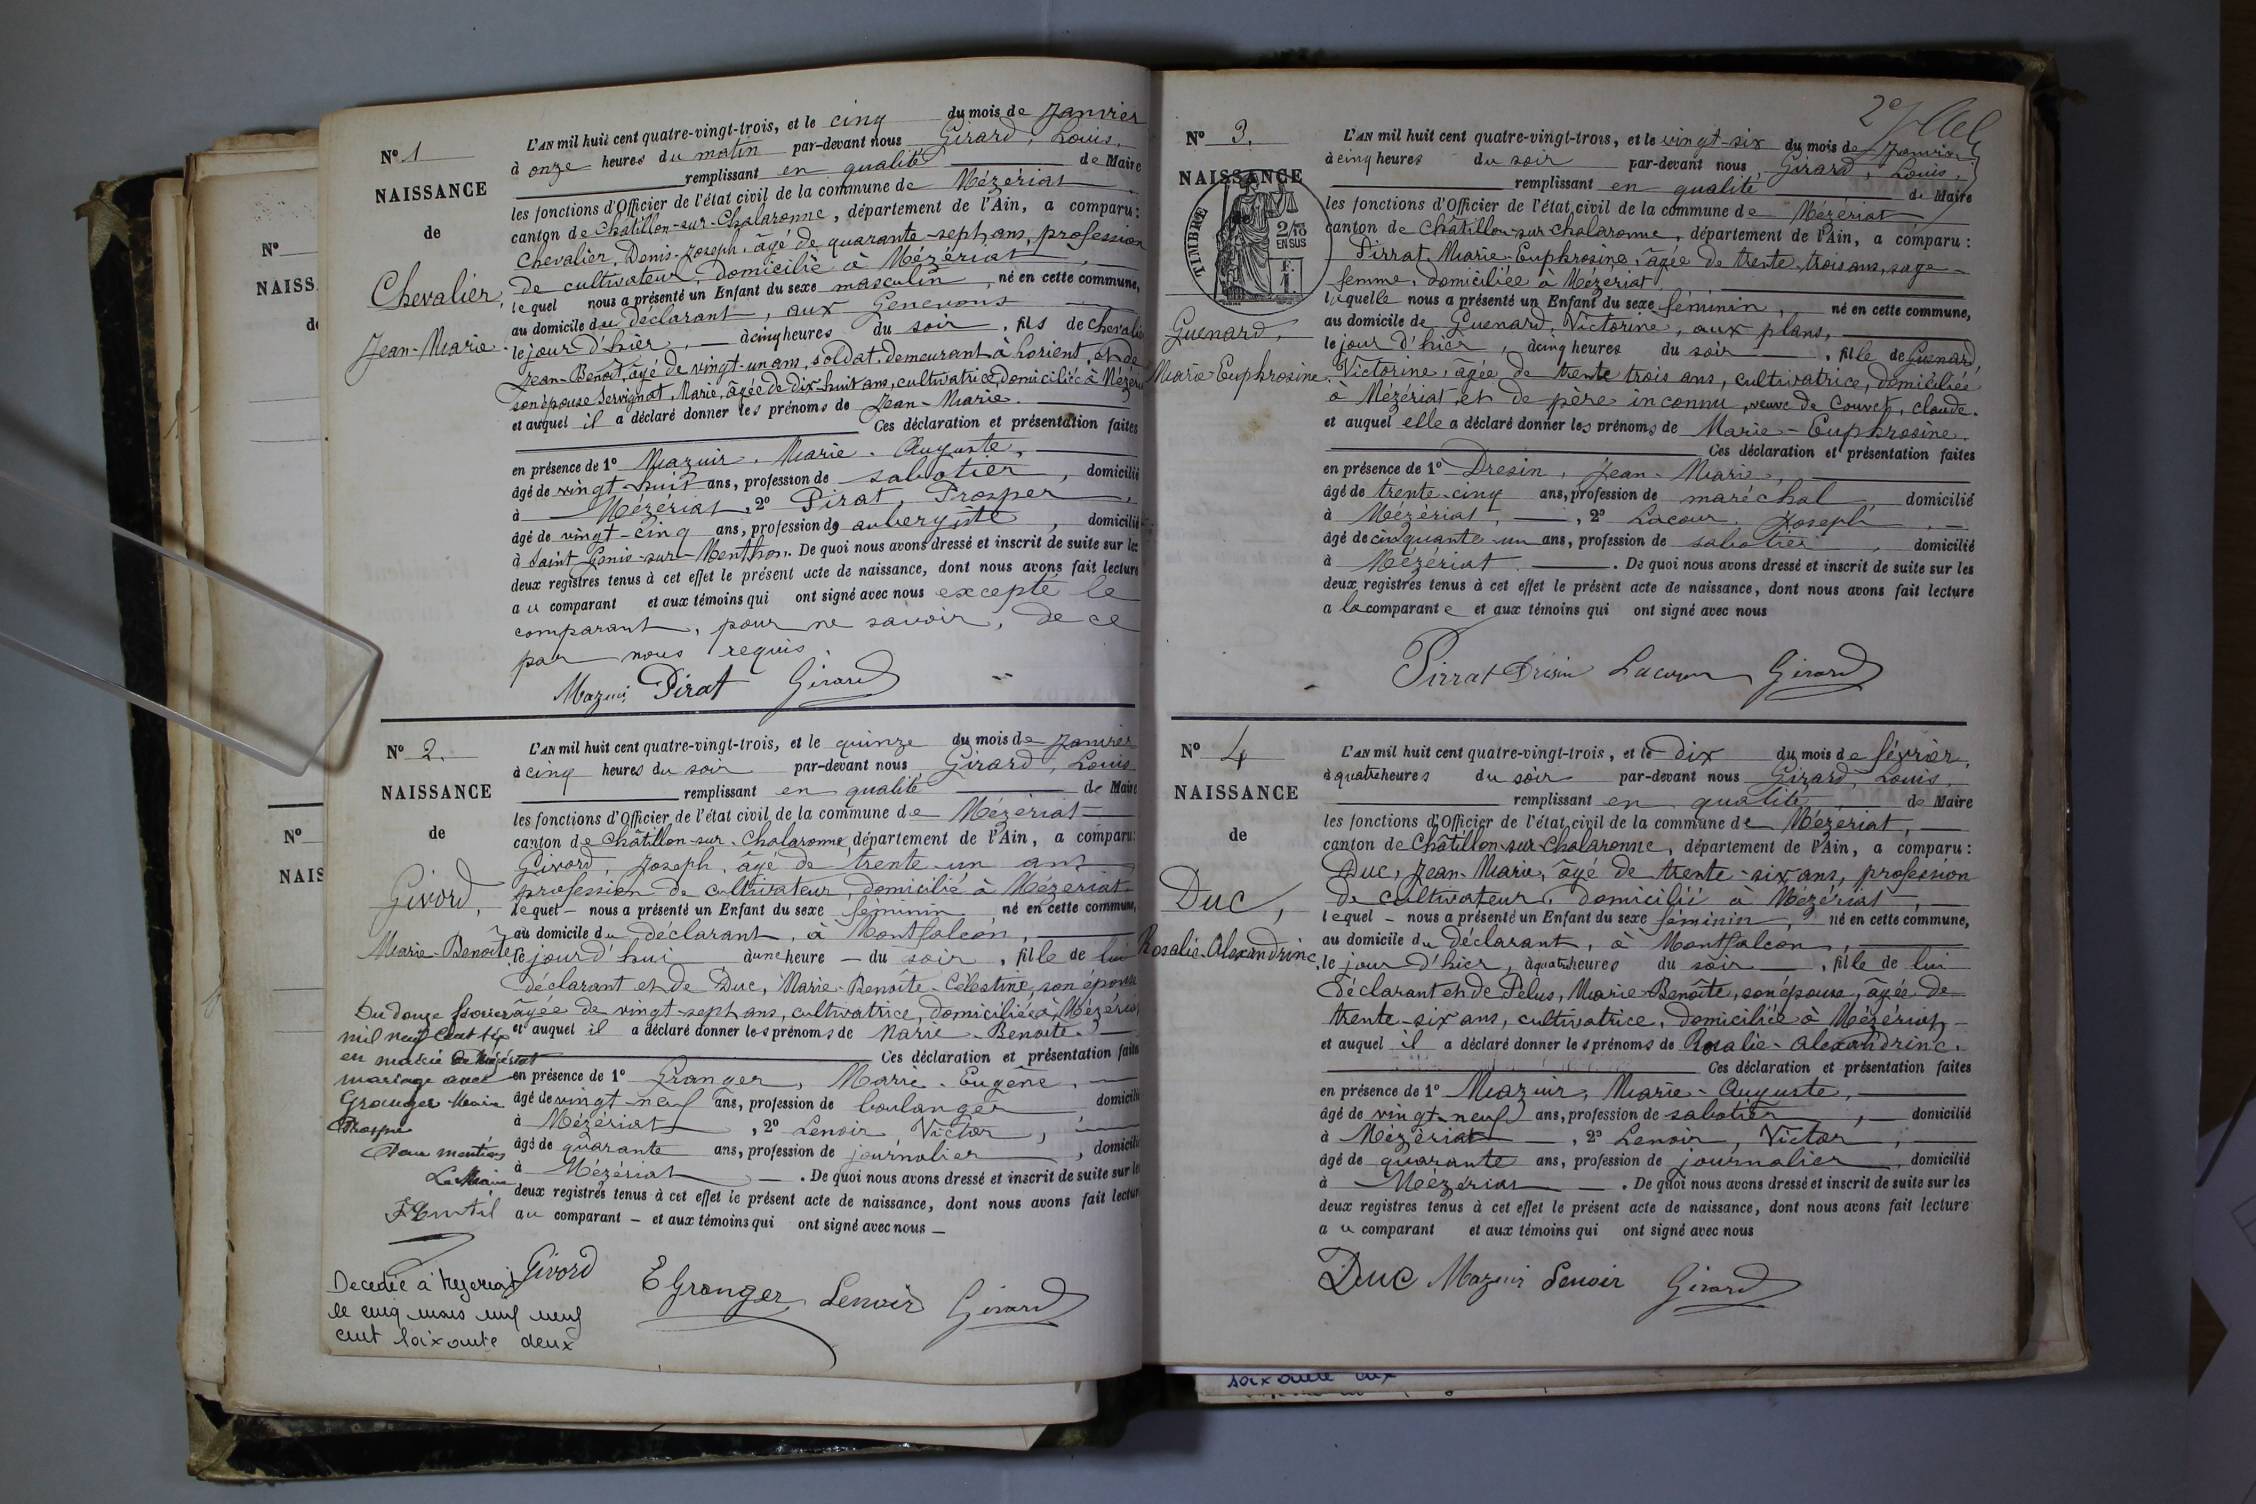 N°
NAISS
de
N°
NAIS
N° 1
NAISSANCE
de
Chevalier,
Jean-Marie
L'AN mil huit cent quatre-vingt-trois, et le cinq du mois de Janvier
à onze heures du matin par-devant nous Girard, Louis,
remplissant en qualité de Maire
les fonctions d'Officier de l'état civil de la commune de Mézériat
canton de Châtillon-sur-Chalaronne, département de l'Ain, a comparu:
Chevalier, Denis-Joseph, âgé de quarante-sept ans, profession
de cultivateur, domicilié à Mézériat
lequel nous a présenté un Enfant du sexe masculin, né en cette commune,
au domicile du déclarant, aux Genevons
le jour d'hier, à cinq heures du soir, fils de Chevalier
Jean-Benoit, âgé de vingt-un ans, soldat, demeurant à Lorient, et de
son épouse Servignat, Marie, âgée de dix-huit ans, cultivatrice, domiciliée à Mézériat
et auquel il a déclaré donner les prénoms de Jean-Marie.
Ces déclaration et présentation faites
en présence de 1° Mazuir, Marie-Auguste,
âgé de vingt-huit ans, profession de sabotier, domicilié
à Mézériat, 2° Pirat, Prosper,
âgé de vingt-cinq ans, profession de aubergiste, domicilié
à Saint Genis-sur-Menthon. De quoi nous avons dressé et inscrit de suite sur les
deux registres tenus à cet effet le présent acte de naissance, dont nous avons fait lecture
au comparant et aux témoins qui ont signé avec nous excepté le
comparant, pour ne savoir, de ce
par nous requis.
Mazuir Pirat Girard
N° 2.
NAISSANCE
de
Givord,
Marie-Benoîte
L'AN mil huit cent quatre-vingt-trois, et le quinze du mois de Janvier
à cinq heures du soir par-devant nous Girard, Louis
remplissant en qualité de Maire
les fonctions d'Officier de l'état civil de la commune de Mézériat
canton de Châtillon-sur-Chalaronne, département de l'Ain, a comparu:
Givord, Joseph, âgé de trente-un ans
profession de cultivateur, domicilié à Mézériat
lequel - nous a présenté un Enfant du sexe féminin né en cette commune,
au domicile du déclarant, à Montfalcon,
le jour d'hui à une heure - du soir, fille de lui
déclarant et de Duc, Marie-Benoîte-Célestine, son épouse
âgée de vingt-sept ans, cultivatrice, domiciliés à Mézériat
et auquel il a déclaré donner les prénoms de Marie-Benoîte.
Ces déclaration et présentation faites
en présence de 1° Granger, Marie-Eugène,
âgé de vingt-neuf ans, profession de boulanger domicilié
à Mézériat, 2° Lenoir, Victor,
âgé de quarante ans, profession de journalier, domicilié
à Mézériat. De quoi nous avons dressé et inscrit de suite sur les
deux registres tenus à cet effet le présent acte de naissance, dont nous avons fait lecture
au comparant - et aux témoins qui ont signé avec nous -
Du douze février
mil neuf cent six
en mairie de Mézériat
mariage avec
Granger Marie
Prosper
Pour mention
Le Maire
Givord E Granger Lenoir Girard
Décédée à Mézériat
le cinq mars mil neuf
cent soixante deux
N° 3.
NAISSANCE
TIMBRE
2/10
EN SUS
F.
1.
Guenard,
Marie-Euphrosine
L'AN mil huit cent quatre-vingt-trois, et le vingt-six du mois de Janvier
à cinq heures du soir par-devant nous Girard, Louis,
remplissant en qualité de Maire
les fonctions d'Officier de l'état civil de la commune de Mézériat
canton de Châtillon-sur-Chalaronne, département de l'Ain, a comparu:
Pirrat, Marie-Euphrosine, âgée de trente-trois ans, sage-
femme, domiciliée à Mézériat
laquelle nous a présenté un Enfant du sexe féminin, né en cette commune,
au domicile de Guenard, Victorine, aux plans,
le jour d'hier, à cinq heures du soir, fille de Guenard,
Victorine, âgée de trente trois ans, cultivatrice, domiciliée
à Mézériat, et de père inconnu, veuve de Couvet, Claude.
et auquel elle a déclaré donner les prénoms de Marie-Euphrosine.
Ces déclaration et présentation faites
en présence de 1° Dresin, Jean-Marie,
âgé de trente-cinq ans, profession de maréchal, domicilié
à Mézériat, 2° Lacour, Joseph,
âgé de cinquante-un ans, profession de sabotier, domicilié
à Mézériat. De quoi nous avons dressé et inscrit de suite sur les
deux registres tenus à cet effet le présent acte de naissance, dont nous avons fait lecture
a la comparante et aux témoins qui ont signé avec nous
Pirrat Drésin Lacour Girard
N° 4
NAISSANCE
de
Duc,
Rosalie-Alexandrine
L'AN mil huit cent quatre-vingt-trois, et le dix du mois de février,
à quatre heures du soir par-devant nous Girard, Louis,
remplissant en qualité de Maire
les fonctions d'Officier de l'état civil de la commune de Mézériat,
canton de Châtillon-sur-Chalaronne, département de l'Ain, a comparu:
Duc, Jean-Marie, âgé de trente-six ans, profession
de cultivateur, domicilié à Mézériat,
lequel - nous a présenté un Enfant du sexe féminin, né en cette commune,
au domicile du déclarant, à Montfalcon,
le jour d'hier, à quatre heures du soir, fille de lui
déclarant et de Pélus, Marie-Benoîte, son épouse, âgée de
trente-six ans, cultivatrice, domiciliée à Mézériat,
et auquel il a déclaré donner les prénoms de Rosalie-Alexandrine.
Ces déclaration et présentation faites
en présence de 1° Mazuir, Marie-Auguste,
âgé de vingt-neuf ans, profession de sabotier, domicilié
à Mézériat, 2° Lenoir, Victor,
âgé de quarante ans, profession de journalier, domicilié
à Mézériat. De quoi nous avons dressé et inscrit de suite sur les
deux registres tenus à cet effet le présent acte de naissance, dont nous avons fait lecture
au comparant et aux témoins qui ont signé avec nous
Duc Mazuir Lenoir Girard